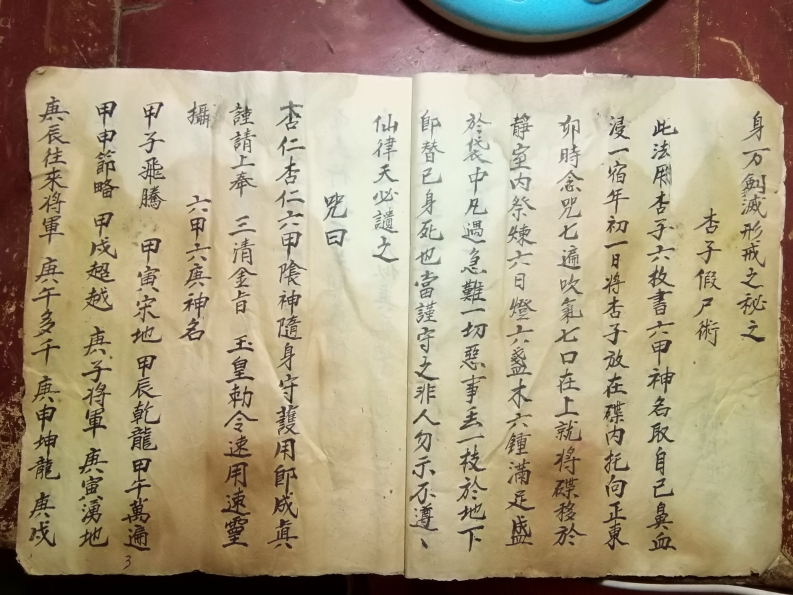 身万劍滅形戒之秘之
杏子假尸術
此法用杏子六枚書六甲神名取自己鼻血
浸一宿年初一日將杏子放在碟内托向正東
卯時念咒七遍吹氣七口在上就將碟移於
靜室内祭煉六日燈六盞木六鍾滿足盛
於袋中凡遇急難一切惡事丢一枝於地下
即替已身死也當謹守之非人勿示不遵、
仙律天必譴之
咒曰
杏仁杏仁六甲陰神隨身守護用即成真
謹請上奉 三清金旨 玉皇勅令速用速靈
攝 六甲六庚神名
甲子飛騰 甲寅宋地 甲辰乾龍 甲午萬遍
甲申節略 甲戌超越 庚子將軍 庚寅湧地
庚辰往來将軍 庚午多千 庚申坤龍 庚戌
3